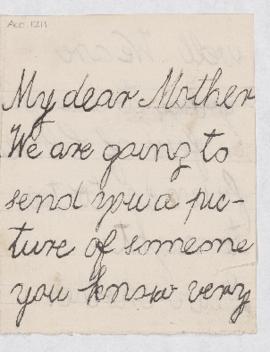 Acc. 1211
My dear Mother
We are going to
send you a pic-
ture of someone
you know very